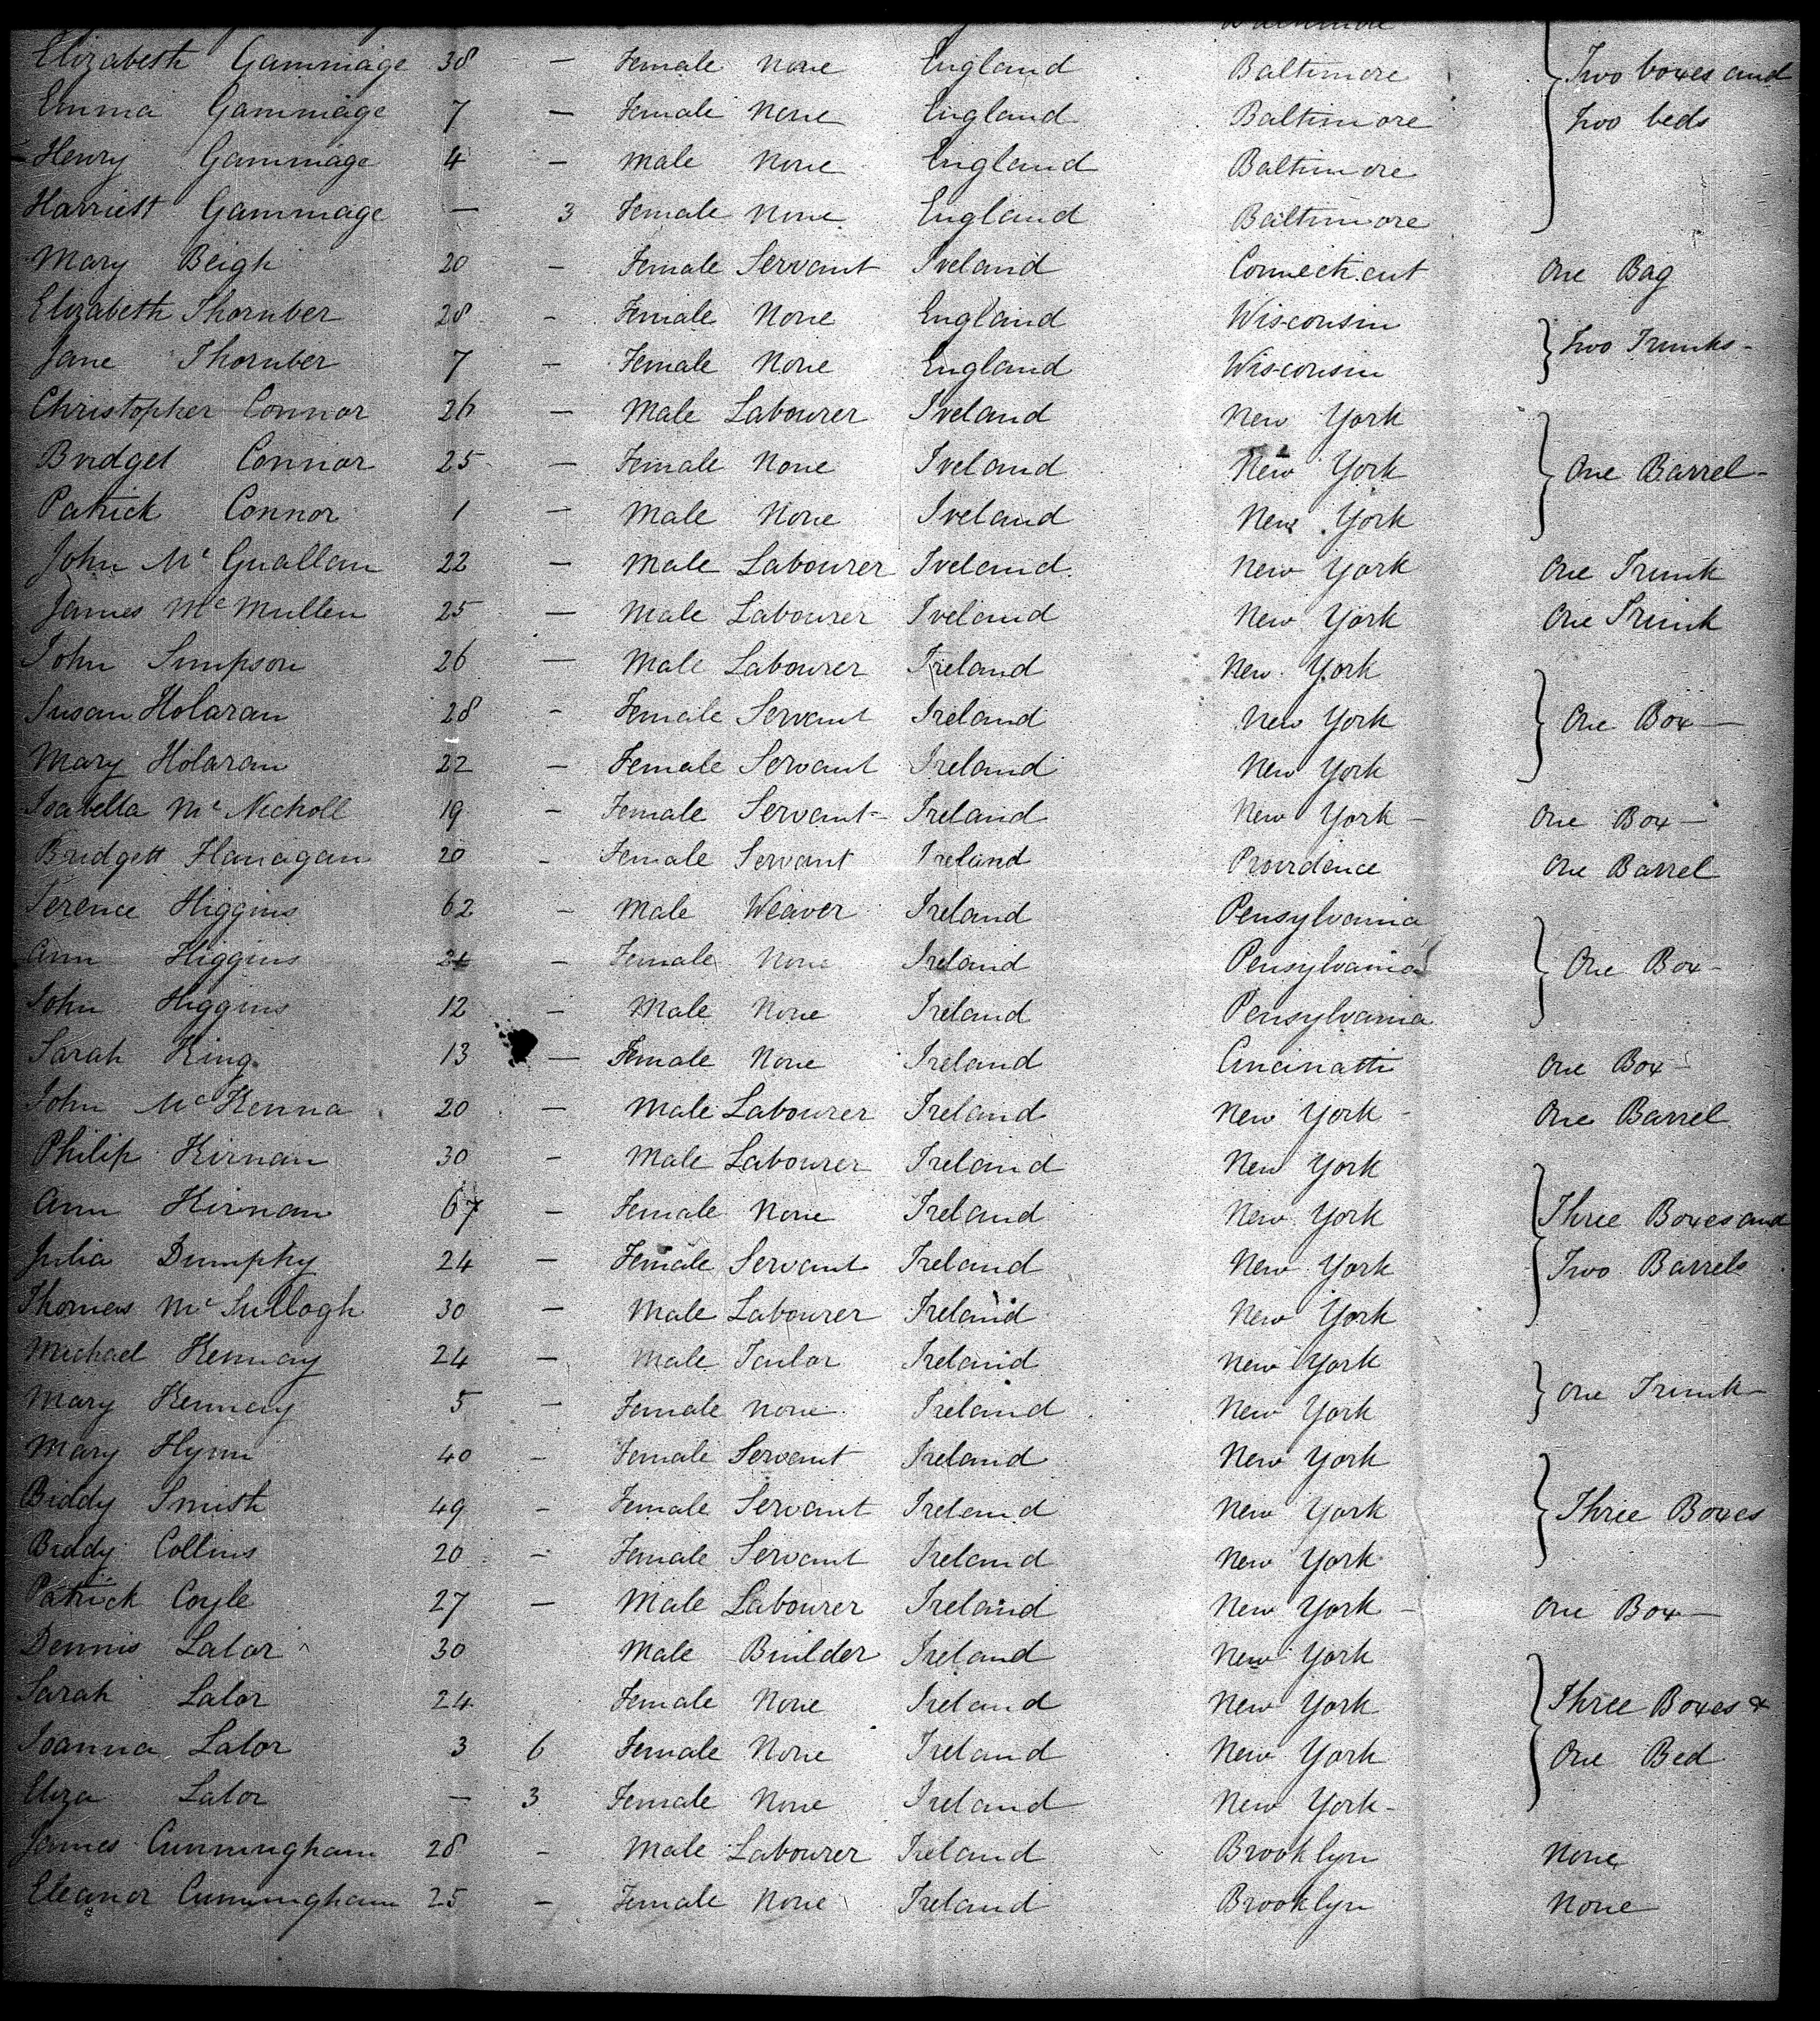 Baltimore
Elizabeth Gammage 38 — Female None England Baltimore Two boxes and
Emma Gammage 7 — Female None England Baltimore Two beds
Henry Gammage 4 — Male None England Baltimore
Harriett Gammage — 3 Female None England Baltimore
Mary Beigh 20 — Female Servant Ireland Connecticut One Bag
Elizabeth Thornber 28 — Female None England Wisconsin
Jane Thornber 7 — Female None England Wisconsin Two Trunks —
Christopher Connor 26 — Male Labourer Ireland New York
Bridget Connor 25 — Female None Ireland New York One Barrel —
Patrick Connor 1 — Male None Ireland New York
John Mc Guallan 22 — Male Labourer Ireland New York One Trunk
James Mc Mullen 25 — Male Labourer Ireland New York One Trunk
John Simpson 26 — Male Labourer Ireland New York
Susan Holaran 28 — Female Servant Ireland New York One Box —
Mary Holaran 22 — Female Servant Ireland New York
Isabella Mc Nicholl 19 — Female Servant Ireland New York — One Box —
Bridgett Flanagan 20 — Female Servant Ireland Providence One Barrel
Terence Higgins 62 — Male Weaver Ireland Pensylvania
Ann Higgins — Female None Ireland Pensylvania One Box —
John Higgins 12 — Male None Ireland Pensylvania
Sarah King 13 — Female None Ireland Cincinatti One Box —
John Mc Kenna 20 — Male Labourer Ireland New York — One Barrel
Philip Kirnan 30 — Male Labourer Ireland New York
Ann Kirnan 67 — Female None Ireland New York Three Boxes and
Julia Dumphy 24 — Female Servant Ireland New York Two Barrels
Thomas Mc Sullogh 30 — Male Labourer Ireland New York
Michael Kennay 24 — Male Tailor Ireland New York
Mary Kennay 5 — Female None Ireland New York One Trunk —
Mary Flynn 40 — Female Servant Ireland New York
Biddy Smith 49 — Female Servant Ireland New York Three Boxes
Biddy Collins 20 — Female Servant Ireland New York
Patrick Coyle 27 — Male Labourer Ireland New York — One Box —
Dennis Lalor 30 Male Builder Ireland New York
Sarah Lalor 24 Female None Ireland New York Three Boxes &
Joanna Lalor 3 6 Female None Ireland New York One Bed
Eliza Lalor — 3 Female None Ireland New York —
James Cunningham 28 — Male Labourer Ireland Brooklyn None
Eleanor Cunningham 25 — Female None Ireland Brooklyn None